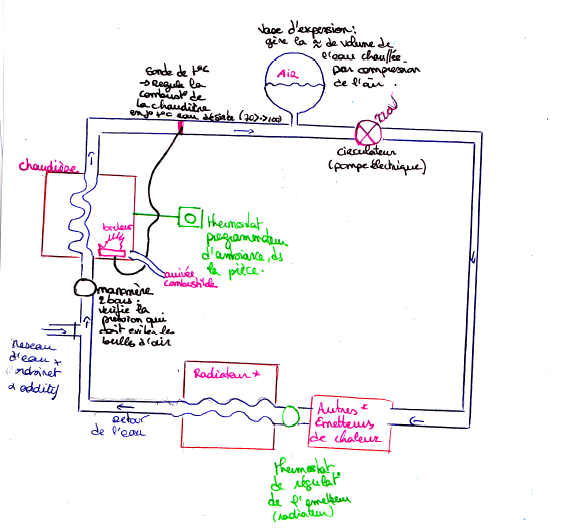 Vase d'expension:
gère la ≈ de volume de
l'eau chauffée
par compression
de l'air.
Air
Sonde de t°C
→ Regule la
combust° de
la chaudière
en f° t°C eau désirée (70→100)
220V
circulateur
(pompe électrique)
chaudière
bruleur
thermostat
programmateur
d'ambiance, ds
la pièce.
arrivée
combustible
manomère
2 bars.
verifie la
pression qui
doit eviter les
bulls d'air
Reseau
d'eau
additif
Radiateur *
Autres *
Emetteurs
de chaleur
retour
de l'eau
thermostat
de régulat°
de l'emetteur
(radiateur)